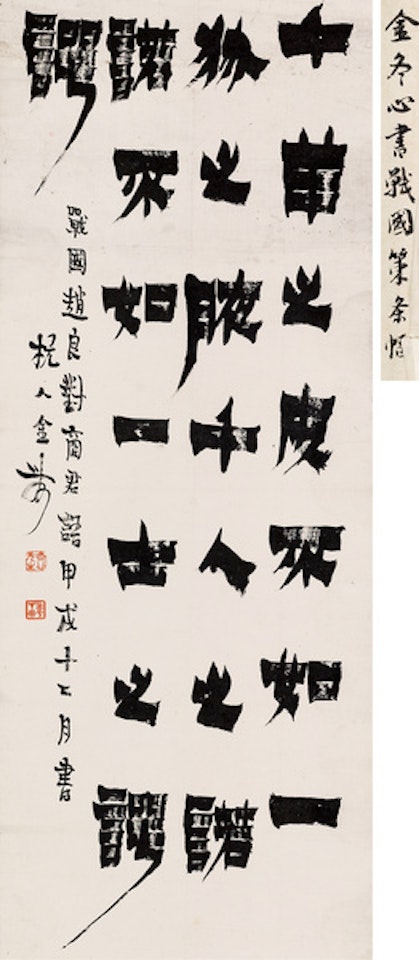 金冬心書戰國策条幅
千羊之皮不如一
狐之腋千人之諾
諾不如一士之諤
諤
戰國趙良對商君語甲戌十二月書
杭人金農